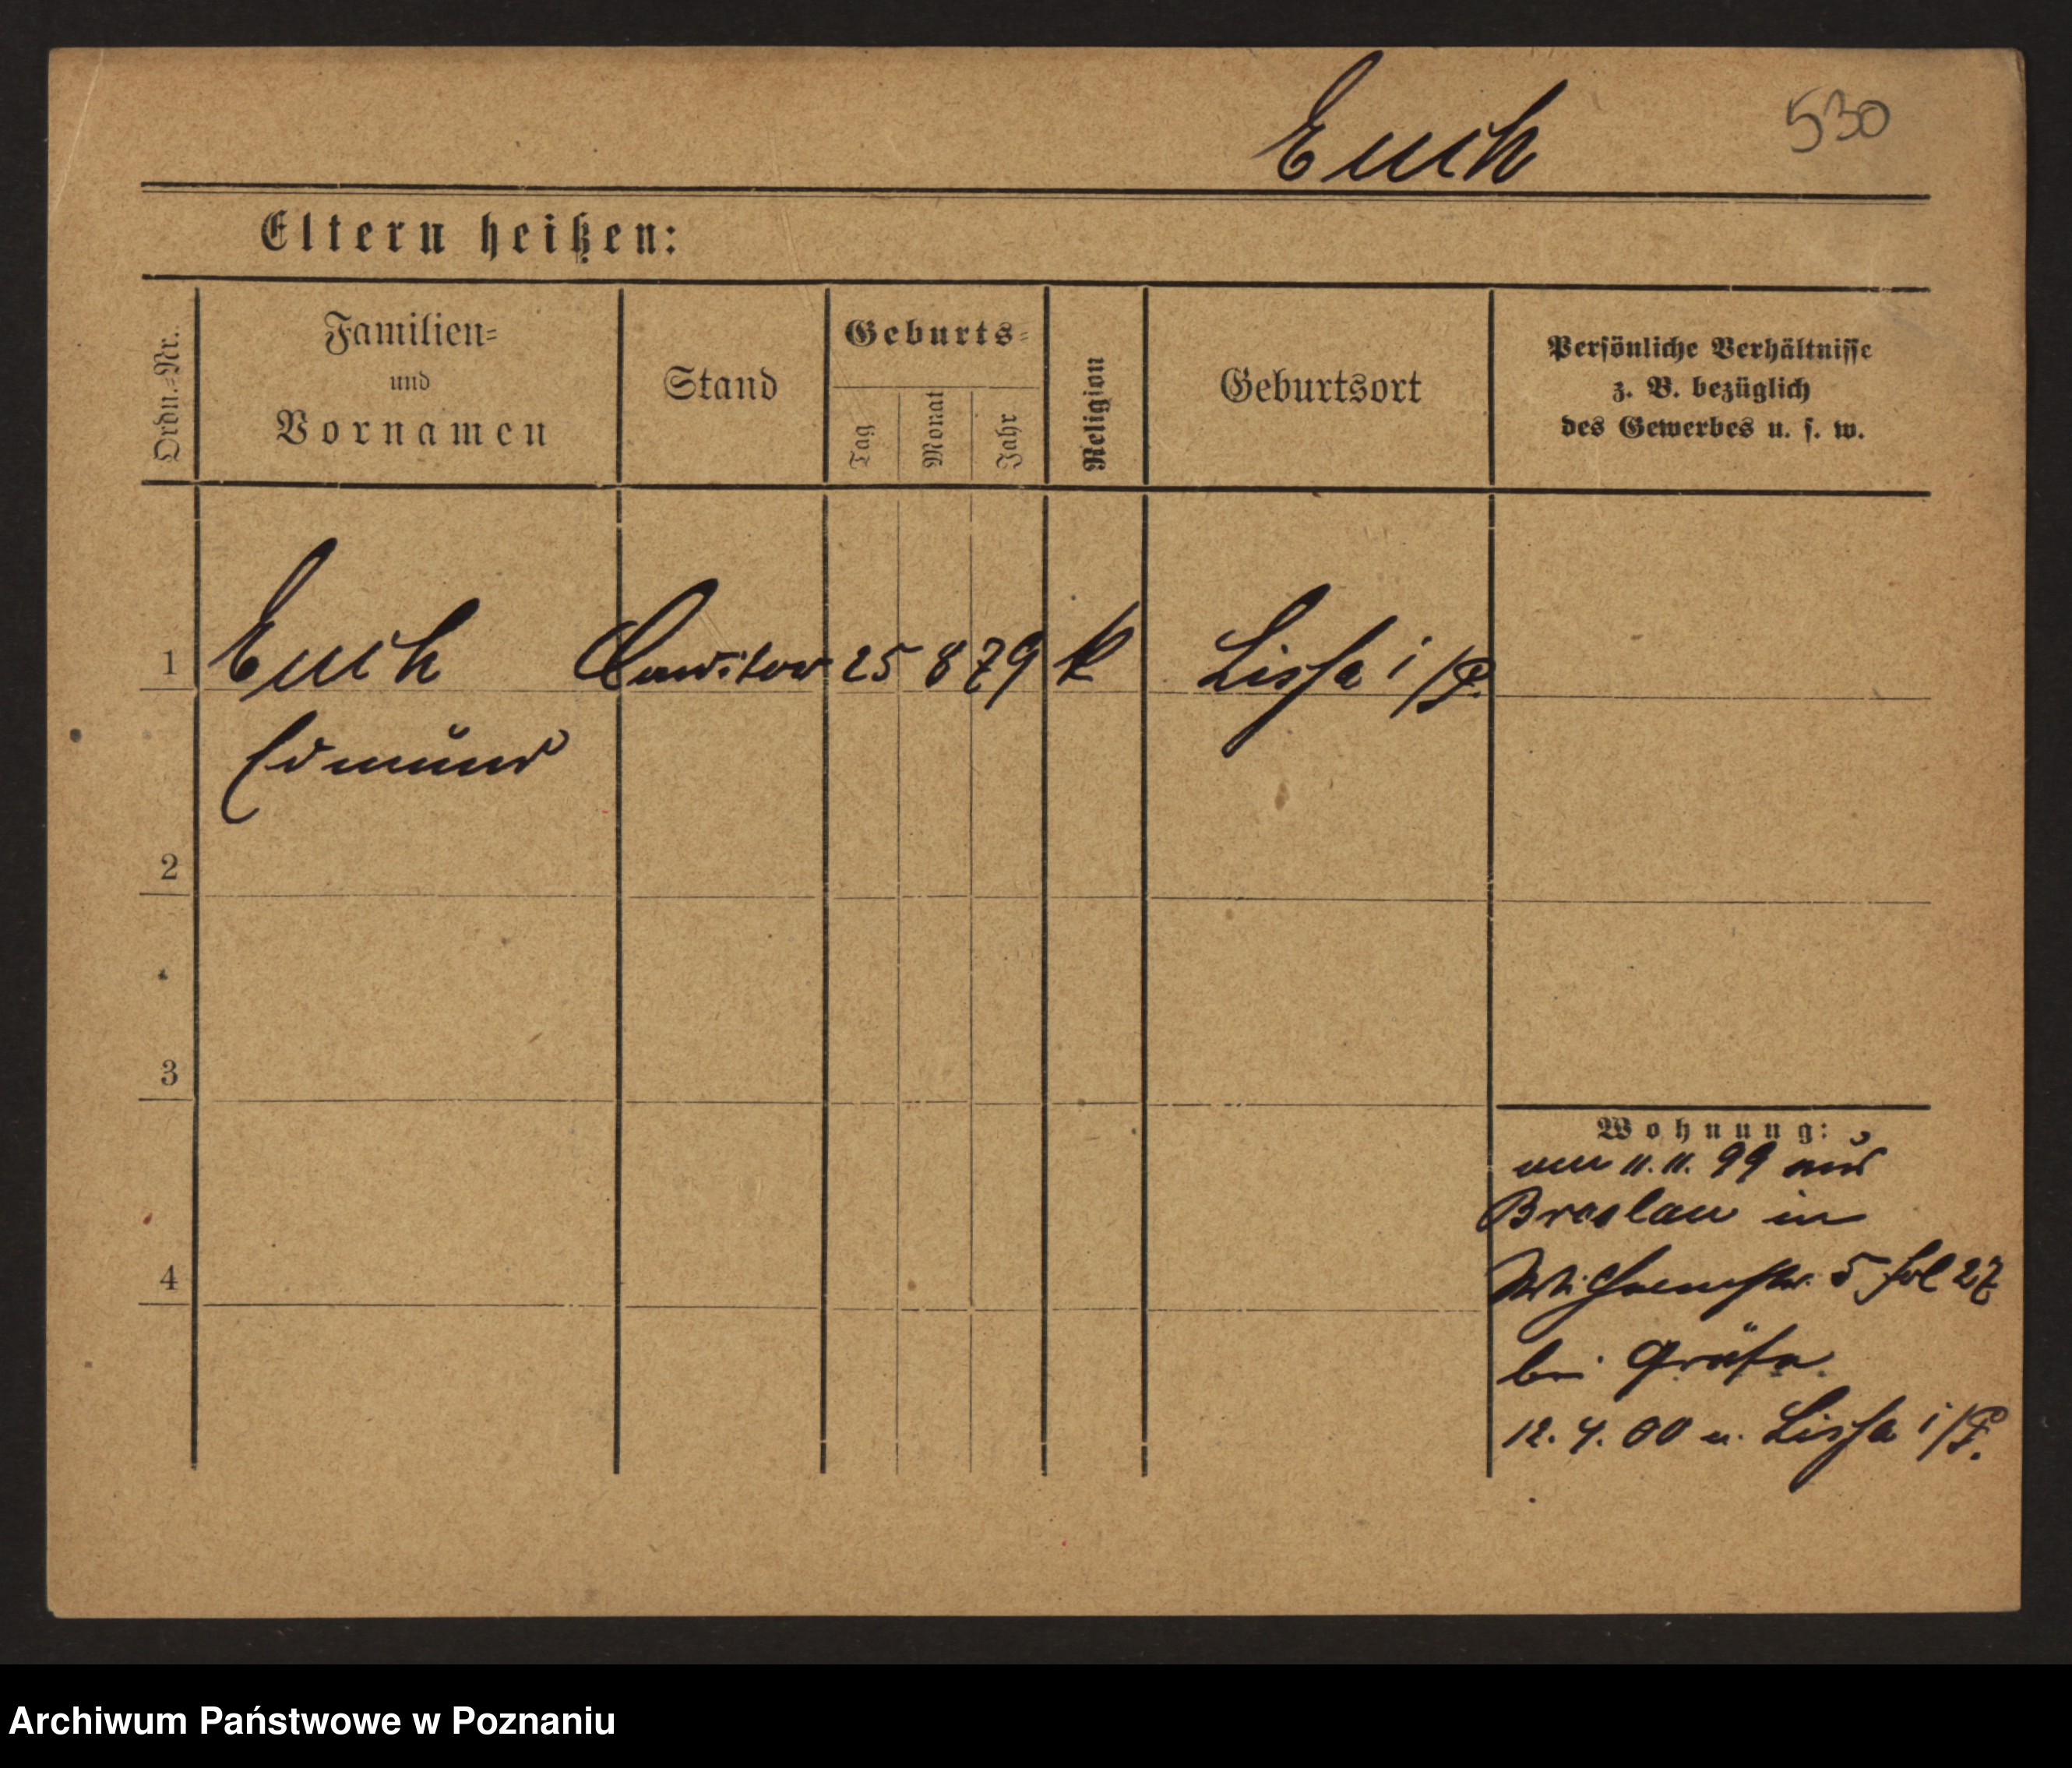 530
Euch
Eltern heißen:
Ordn.-Nr.
Familien-
und
Vornamen
Stand
Geburts-
Tag
Monat
Jahr
Religion
Geburtsort
Persönliche Verhältnisse
z. B. bezüglich
des Gewerbes u. s. w.
1 Euch Conditor 25 8 79 k Lissa i/P.
Edmund
2
3
4
Wohnung:
am 11. 11. 99 aus
Breslau in
Wilhelmstr. 5 fol 27
bei Gräfe
12. 4. 00 n. Lissa i/P.
Archiwum Państwowe w Poznaniu